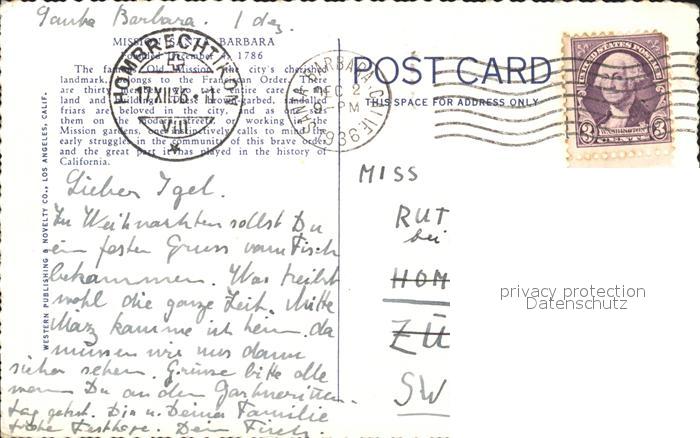 Santa Barbara. 1 dez.
MISSION SANTA BARBARA
Founded December 4, 1786
The famous Old Mission, the city's cherished
landmark, belongs to the Franciscan Order. There
are thirty who take entire care of the
land and buildings. These brown-garbed, sandalled
friars are beloved in the city, and as one sees
them on the modern streets or working in the
Mission gardens, one instinctively calls to mind the
early struggles in the community of this brave order
and the great part it has played in the history of
California.
WESTERN PUBLISHING & NOVELTY CO., LOS ANGELES, CALIF.
HOMBRECHTIKON
17.XII.36
SANTA BARBARA, CALIF.
DEC 2
PM
1936
POST CARD
THIS SPACE FOR ADDRESS ONLY
UNITED STATES POSTAGE
WASHINGTON
3 CENTS 3
Lieber Igel.
Zu Weihnachten sollst Du
ein festen Gruss vom Fisch
bekommen. Was treibst
wohl die ganze Zeit. Mitte
März komme ich heim, da
müssen wir uns dann
sicher sehen. Grüsse bitte alle
wenn Du an den
tag gehst. Dir u. Deiner Familie
frohe Festtage. Dein Fisch.
MISS
RUT
bei
HOM
ZÜ
SW
privacy protection
Datenschutz